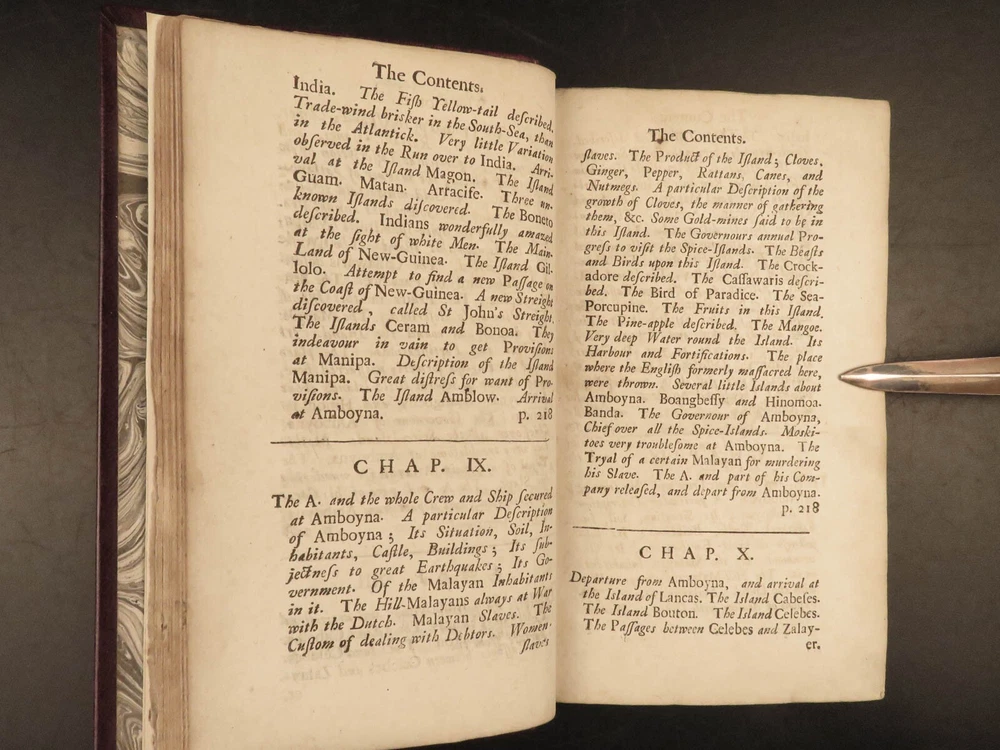 The Contents.
India. The Fiſh Yellow-tail deſcribed.
Trade-wind brisker in the South-Sea, than
in the Atlantick. Very little Variation
obſerved in the Run over to India. Arri-
val at the Iſland Magon. The Iſland
Guam. Matan. Artacife. Three un-
known Iſlands diſcovered. The Boneto
deſcribed. Indians wonderfully amazed
at the ſight of white Men. The Main-
Land of New-Guinea. The Iſland Gil-
lolo. Attempt to find a new Paſſage on
the Coaſt of New-Guinea. A new Streight
diſcovered, called St John's Streight.
The Iſlands Ceram and Bonoa. They
indeavour in vain to get Proviſions
at Manipa. Deſcription of the Iſland
Manipa. Great diſtreſs for want of Pro-
viſions. The Iſland Amblow. Arrival
at Amboyna. p. 218
CHAP. IX.
The A. and the whole Crew and Ship ſecured
at Amboyna. A particular Deſcription
of Amboyna; Its Situation, Soil, In-
habitants, Caſtle, Buildings; Its ſub-
jectneſs to great Earthquakes; Its Go-
vernment. Of the Malayan Inhabitants
in it. The Hill-Malayans always at War
with the Dutch. Malayan Slaves. The
Cuſtom of dealing with Debtors. Women-
ſlaves
The Contents.
ſlaves. The Product of the Iſland; Cloves,
Ginger, Pepper, Rattans, Canes, and
Nutmegs. A particular Deſcription of the
growth of Cloves, the manner of gathering
them, &c. Some Gold-mines ſaid to be in
this Iſland. The Governours annual Pro-
greſs to viſit the Spice-Iſlands. The Beaſts
and Birds upon this Iſland. The Crock-
adore deſcribed. The Caſſawaris deſcri-
bed. The Bird of Paradice. The Sea-
Porcupine. The Fruits in this Iſland.
The Pine-apple deſcribed. The Mangoe.
Very deep Water round the Iſland. Its
Harbour and Fortifications. The place
where the Engliſh formerly maſſacred here,
were thrown. Several little Iſlands about
Amboyna. Boangbeſſy and Hinomoa.
Banda. The Governour of Amboyna,
Chief over all the Spice-Iſlands. Moski-
toes very troubleſome at Amboyna. The
Tryal of a certain Malayan for murdering
his Slave. The A. and part of his Com-
pany releaſed, and depart from Amboyna.
p. 218
CHAP. X.
Departure from Amboyna, and arrival at
the Iſland of Lancas. The Iſland Cabeſes.
The Iſland Bouton. The Iſland Celebes.
The Paſſages between Celebes and Zalay-
er.